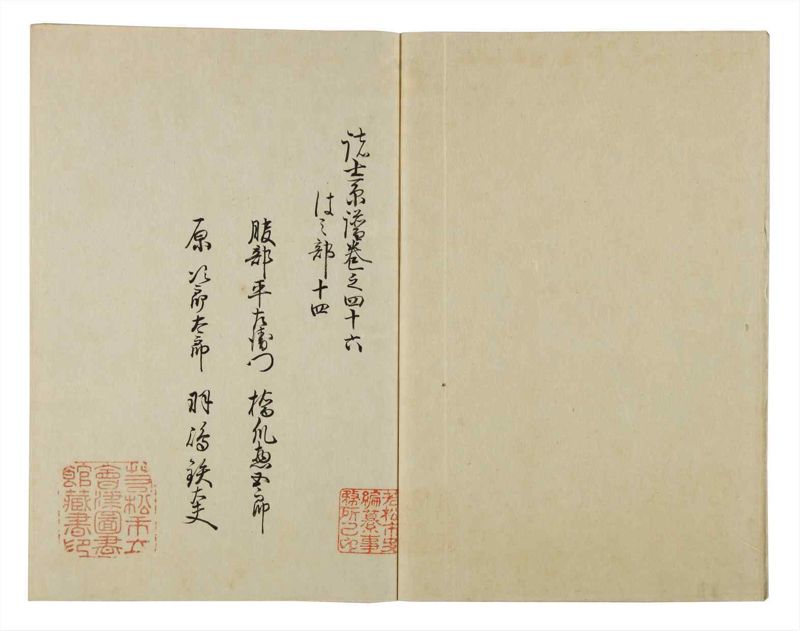 諸士系譜巻之四十六
はノ部 十四
服部平左衛門 橋爪惣五郎
原次郎太郎 羽嶋鉄太夫
若松市史
編纂事
務所之印
若松市立
會津圖書
館藏書印